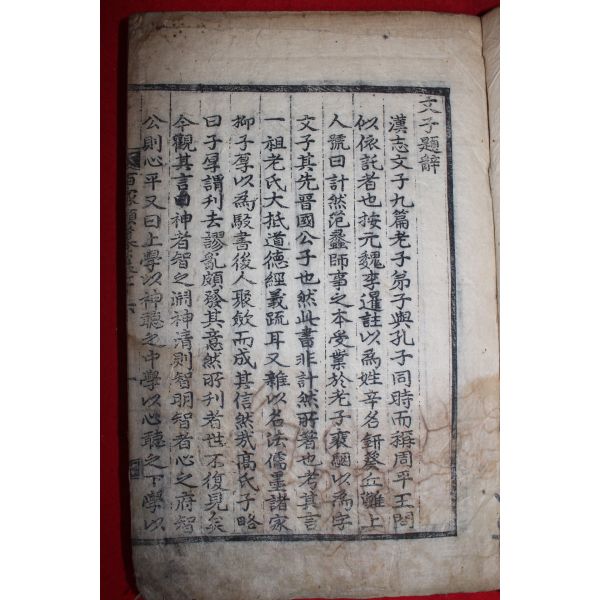 文子題辭
漢志文子九篇老子弟子與孔子同時而稱周平王問
似依託者也按元魏李暹註以爲姓辛名鈃葵丘濮上
人號曰計然范蠡師事之本受業於老子裒綴以爲字
文子其先晉國公子也然此書非計然所著也考其言
一祖老氏大抵道德經義疏耳又雜以名法儒墨諸家
柳子厚以爲駁書後人聚斂而成其信然哉高氏子略
曰子厚謂刋去謬亂頗發其意然所刋者世不復見矣
今觀其言曰神者智之淵神清則智明智者心之府智
公則心平又曰上學以神聽之中學以心聽之下學以